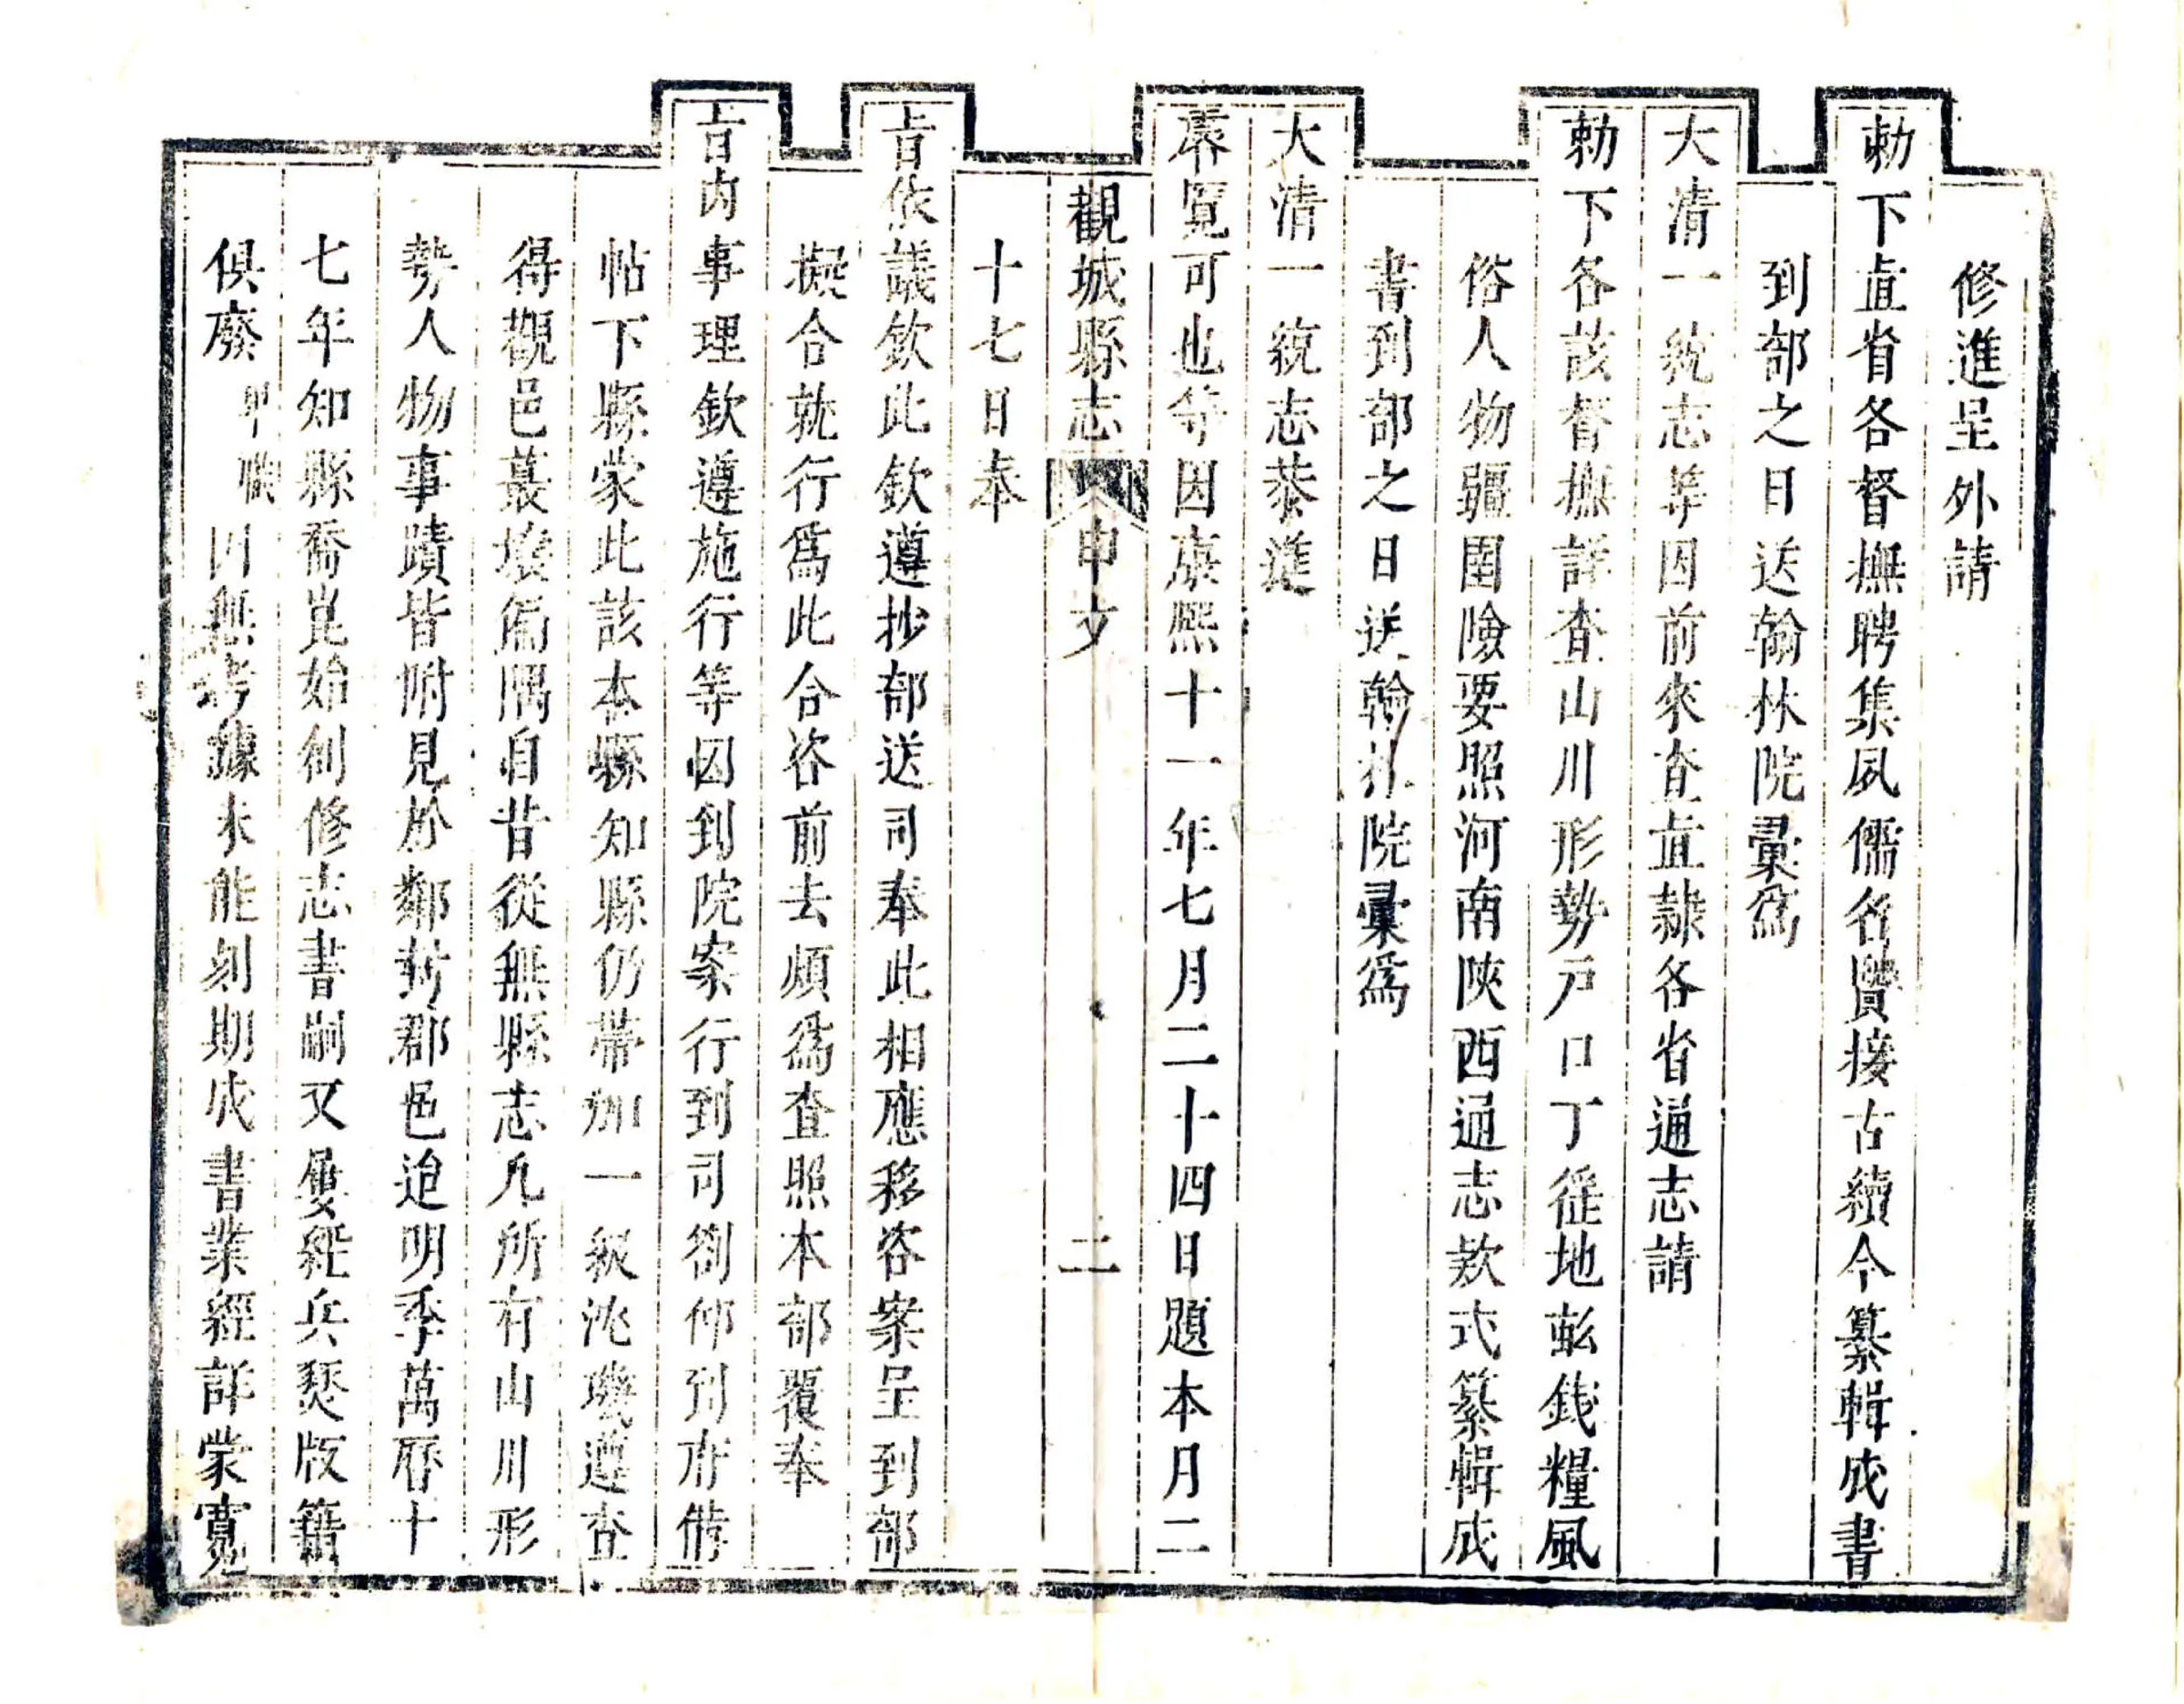 修進呈外請
勅下直省各督撫聘集夙儒名賢接古續今纂輯成書
到部之日送翰林院彚爲
大清一統志等因前來查直隷各省通志請
勅下各該督撫詳查山川形勢戶口丁徭地畝錢糧風
俗人物疆圉險要照河南陝西通志欵式纂輯成
書到部之日送翰林院彚爲
大清一統志恭進
睿覽可也等因康熙十一年七月二十四日題本月二
觀城縣志 申文 二
十七日奉
旨依議欽此欽遵抄部送司奉此相應移咨案呈到部
擬合就行爲此合咨前去煩爲查照本部覆奉
旨內事理欽遵施行等因到院案行到司劄仰到府備
帖下縣蒙此該本縣知縣仍帶加一級沈璣遵查
得觀邑蕞壤偏隅自昔從無縣志凡所有山川形
勢人物事蹟皆附見於鄰封郡邑迨明季萬曆十
七年知縣喬崑始創修志書嗣又屢經兵燹版籍
俱廢卑職因無考據未能刻期成書業經詳蒙寬